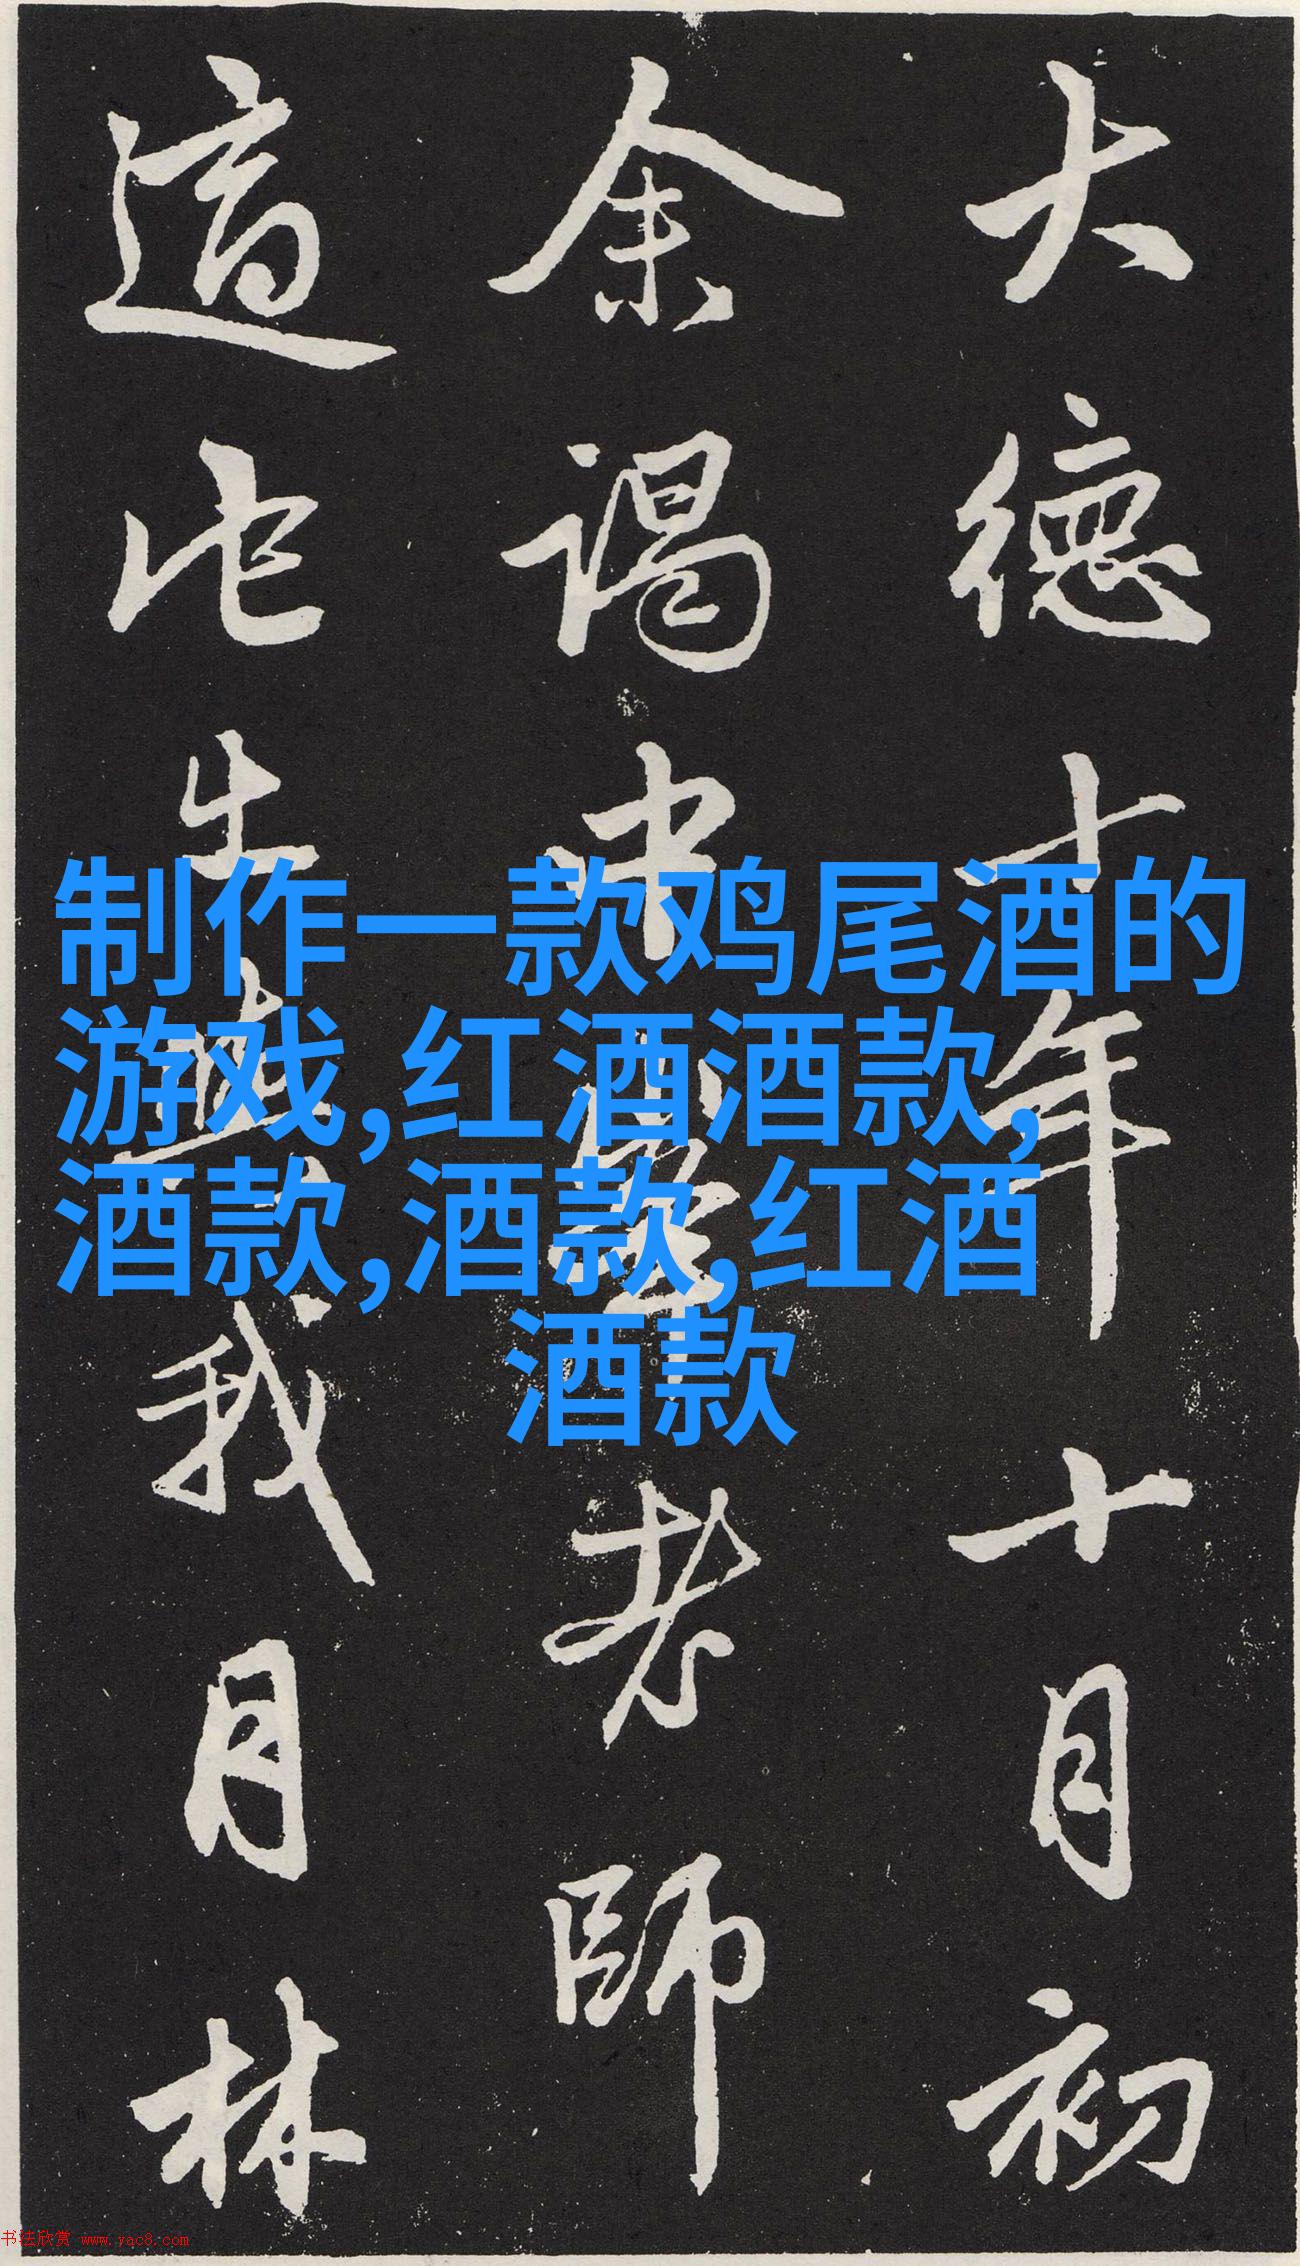 大德十年十月初
余謁中峯老師
適此生與我月林
制作一款鸡尾酒的
游戏,红酒酒款,
酒款,酒款,红酒
酒款
书法欣赏 www.yac8.com